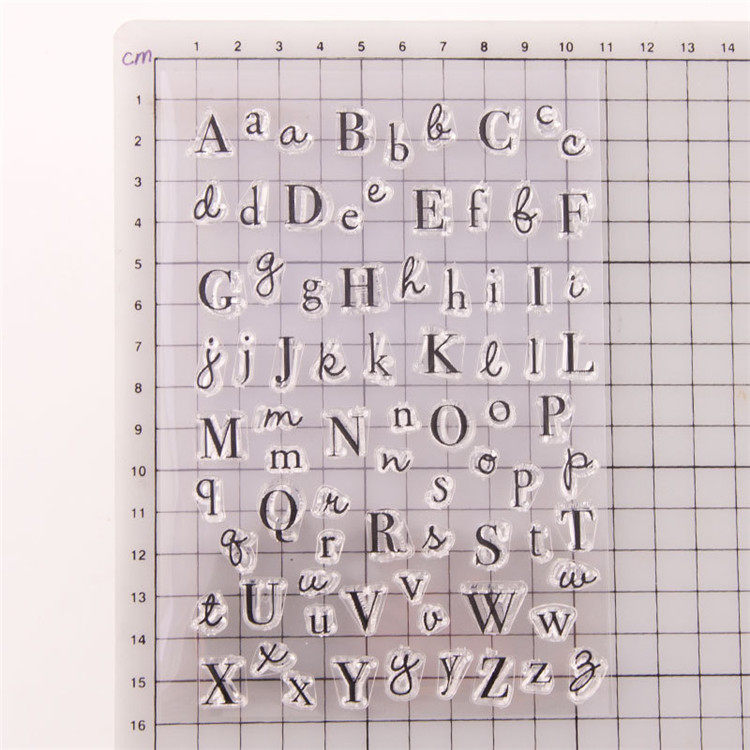 1 2 3 4 5 6 7 8 9 10 11 12 13 14
cm
1
A a a B b b C c c
2
3
d d D e e E f f F
4
5
G g g H h h i I i
6
7
j j J k k K l l L
8
9
M m m N n n O o o P
10
q Q r r R s s S p p t T
11
q
12
13
t U u u V v v W w w
14
X x x Y y y Z z z
15
16